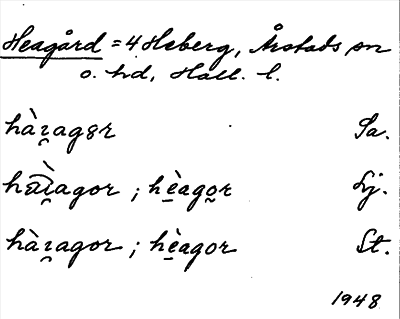 Heagård = 4 Heberg, Årstads sn
o. hd, Hall. l.
hàɩ̯agɞr Sa.
ha͡ɩ̯̀agor ; hè̱agο̯r Lj.
hàɩ̯agor ; hè̱agor St.
1948